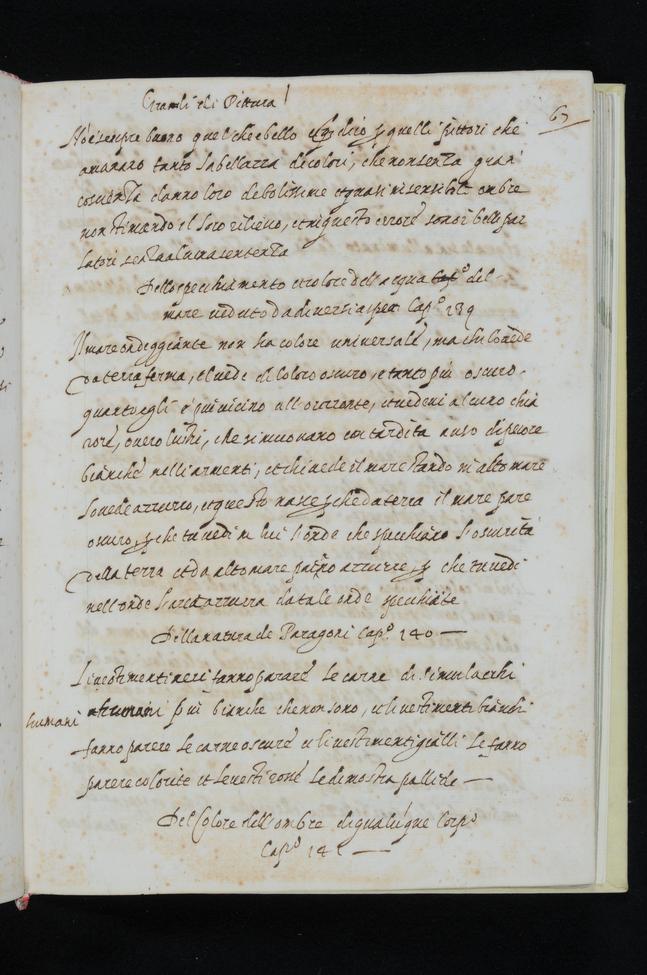 63
Non è sempre buono quel che è bello
amorano tanto la bellezza de colori, che non senza gran
conscienza danno loro debolissime et quasi insensibili ombre
non stimando el loro rilievo, et in questo errore sono i belli par
latori senza alcuna sentenza
Dello specchiamento et colore dell'acqua del
mare veduto da diversi aspeti Cap.º 139
Il mare ondeggiante non ha colore universale, ma chi lo vede
da terra ferma, el vede di coloro oscuro, e tanto più oscuro
quanto egli è più vicino all orizonte, et vedevi alcuno chia
rore, overo lustri, che si muovano con tardita a uso di pecore
bianche nelli armenti, et chi vede il mare stando in alto mare
lo vede azzurro, et questo nasce che da terra il mare pare
oscuro, che tu vedi in lui l'onde che specchiano l'oscurità
della terra et da alto mare paino azzurre, che tu vedi
nell'onde l'aria azzurra da tale onde specchiate
Della natura de Paragoni Cap.º 140 —
I vestimenti neri fanno parere le carne de simulachri
humani
più bianche che non sono, e li vestimenti bianchi
fanno parere le carne oscure e li vestimenti gialli le fanno
parere colorite et le vesti rosse le dimostra pallide —
Del Colore dell'ombre di qualunque Corpo
Cap.º 141 —